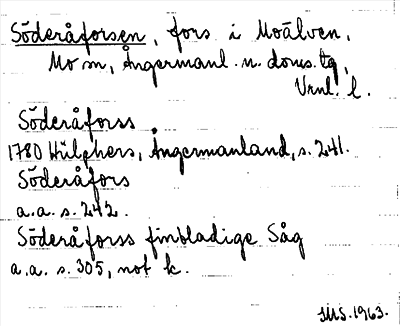 Söderåforsen, fors i Moälven,
Mo sn, Ångermanl. n. doms. tg,
Vrnl. l.
Söderåforss
1780 Hülphers, Ångermanland, s. 241.
Söderåfors
a.a. s. 242.
Söderåforss finbladige Såg
a.a. s. 305, not k.
JMS. 1963.